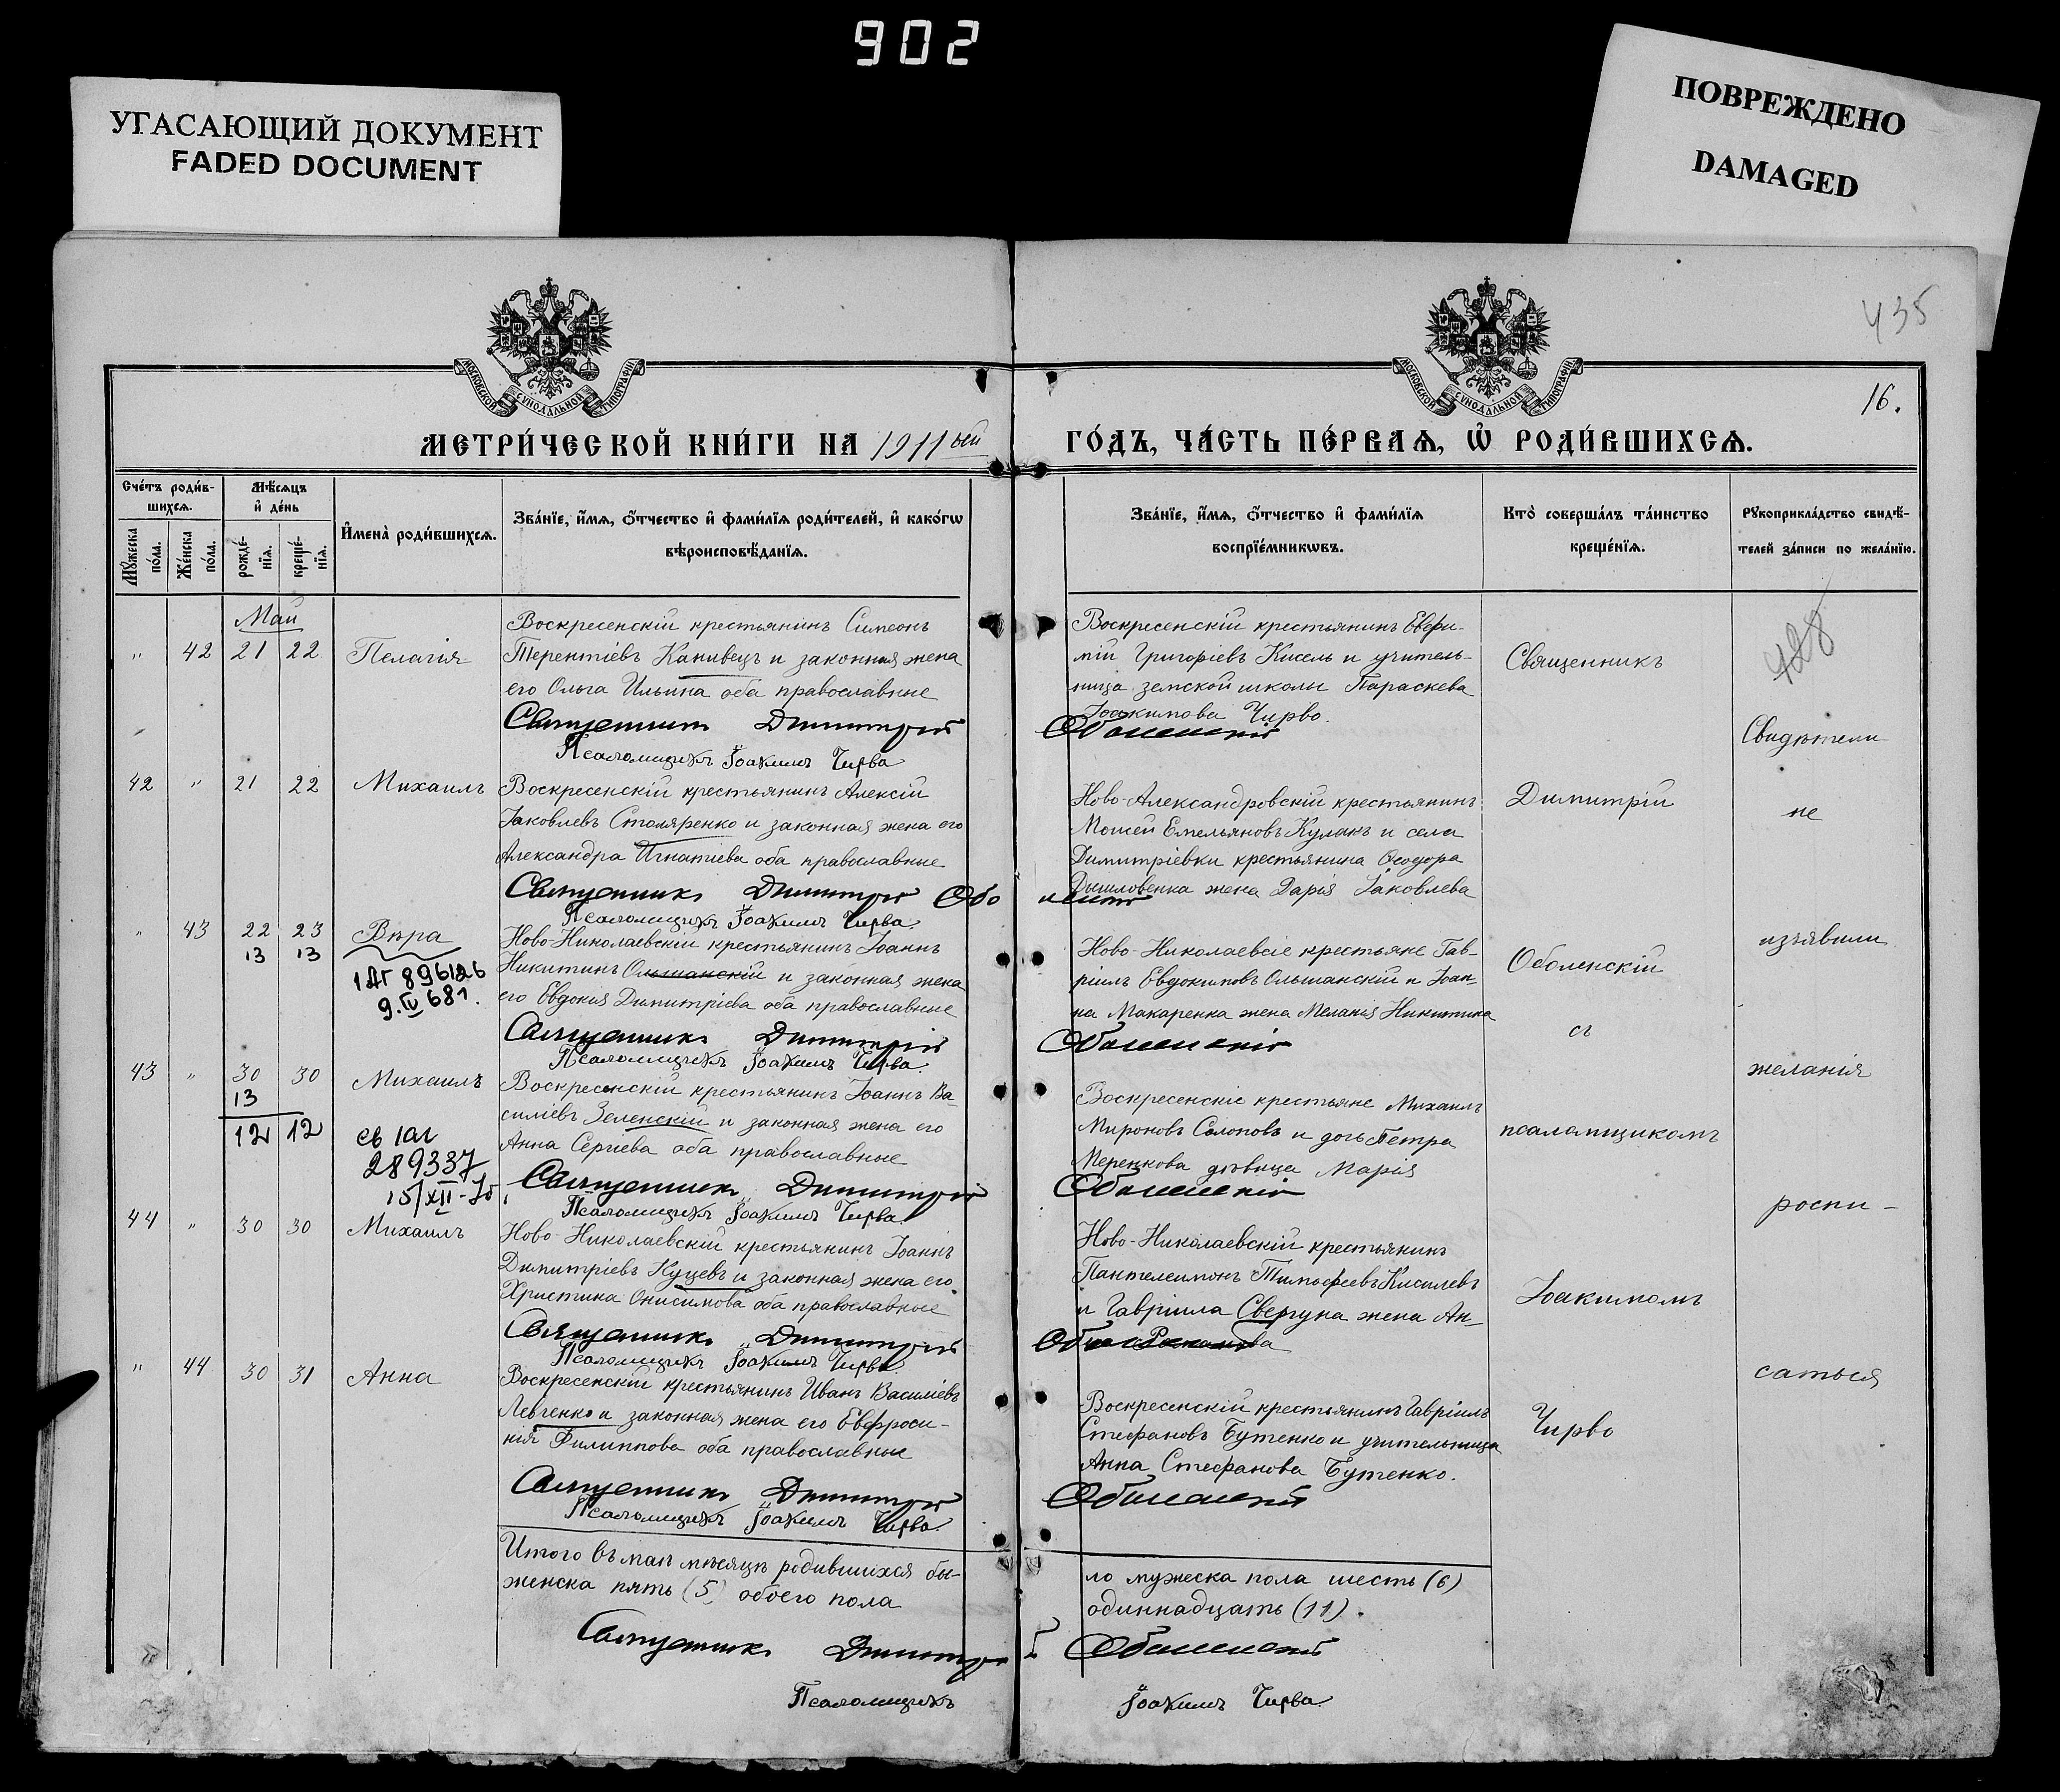 902
УГАСАЮЩИЙ ДОКУМЕНТ
FADED DOCUMENT
ПОВРЕЖДЕНО
DAMAGED
435
16.
МОСКОВСКОЙ СУНОДАЛЬНОЙ ТИПОГРАФІИ
МОСКОВСКОЙ СУНОДАЛЬНОЙ ТИПОГРАФІИ
МЕТРИ́ЧЕСКОЙ КНИ́ГИ НА 1911ый
ГО́ДЪ, ЧА́СТЬ ПЕ́РВАѦ, Ѡ҆ РОДИ́ВШИХСѦ.
Сче́тъ роди́в-
шихсѧ.
Мꙋ́жеска
по́ла.
Же́нска
по́ла.
Мѣ́сѧцъ
и҆ де́нь
рожде́-
нїѧ.
креще́-
нїѧ.
И҆мена̀ роди́вшихсѧ.
Зва́нїе, и҆́мѧ, ѻ҆́тчество и҆ фами́лїѧ роди́телей, и҆ како́гѡ
вѣроисповѣ́данїѧ.
Зва́нїе, и҆́мѧ, ѻ҆́тчество и҆ фами́лїѧ
воспрїе́мникѡвъ.
Кто̀ соверша́лъ та́инство
креще́нїѧ.
Рꙋкоприкла́дство свидѣ́-
телей за́писи по жела́нїю.
Май
" 42 21 22 Пелагія
Воскресенскій крестьянинъ Симеонъ
Терентіевъ Канивецъ и законная жена
его Ольга Ильина оба православные
Священникъ Димитрій
Псаломщикъ Іоакимъ Чирва
Воскресенскій крестьянинъ Евфи-
мій Григоріевъ Кисель и учитель-
ница земской школы Параскева
Іоакимова Чирво.
Оболенскій
Священникъ
428
Свидѣтели
42 " 21 22 Михаилъ
Воскресенскій крестьянинъ Алексій
Іаковлевъ Столяренко и законная жена его
Александра Игнатіева оба православные
Священникъ Димитрій Обо
Псаломщикъ Іоакимъ Чирва.
Ново-Александровскій крестьянинъ
Моисей Емельяновъ Кулакъ и села
Димитріевки крестьянина Ѳеодора
жена Дарія Іаковлева
Димитрій
не
" 43 22 23 Вѣра
13 13
1АГ 896126
9.IV 681.
Ново-Николаевскій крестьянинъ Іоаннъ
Никитинъ Ольшанскій и законная жена
его Евдокія Димитріева оба православные
Священникъ Димитрій
Псаломщикъ Іоакимъ Чирва.
Ново-Николаевсіе крестьяне Гав-
ріилъ Евдокимовъ Ольшанскій и Іоан-
на Макаренка жена Меланія Никитина
Оболенскій
Оболенскій
съ
изъявили
43 " 30 30 Михаилъ
13
12 12
св 1аг
289337
15/XII-
Воскресенскій крестьянинъ Іоаннъ Ва-
силіевъ Зеленскій и законная жена его
Анна Сергіева оба православные
Священникъ Димитрій
Псаломщикъ Іоакимъ Чирва.
Воскресенскіе крестьяне Михаилъ
Мироновъ Солоповъ и дочь Петра
Меренкова дѣвица Марія
Оболенскій
псаломщикомъ
желанія
44 " 30 30 Михаилъ
Ново-Николаевскій крестьянинъ Іоаннъ
Димитріевъ Куцевъ и законная жена его
Христина Онисимова оба православные
Священникъ Димитрій
Псаломщикъ Іоакимъ Чирва
Ново-Николаевскій крестьянинъ
Пантелеимонъ Тимофеевъ Киселевъ
и Гавріила Свергуна жена Ан-
Іоакимомъ
роспи-
" 44 30 31 Анна
Воскресенскій крестьянинъ Иванъ Василіевъ
Левченко и законная жена его Евфроси-
нія Филиппова оба православные
Священникъ Димитрій
Псаломщикъ Іоакимъ Чирва.
Воскресенскій крестьянинъ Гавріилъ
Стефановъ Бутенко и учительница
Анна Стефанова Бутенко.
Оболенскій
Чирво
саться
Итого въ маѣ мѣсяцѣ родившихся бы-
ло мужеска пола шесть (6)
женска пять (5) обоего пола
одиннадцать (11).
Священникъ Димитрій Оболенскій
Псаломщикъ Іоакимъ Чирва.